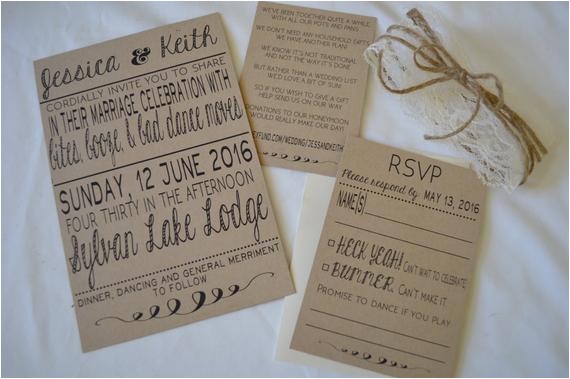 Jessica & Keith
CORDIALLY INVITE YOU TO SHARE
IN THEIR MARRIAGE CELEBRATION WITH
bites, booze, & bad dance moves
SUNDAY, 12 JUNE 2016
FOUR THIRTY IN THE AFTERNOON
Sylvan Lake Lodge
DINNER, DANCING AND GENERAL MERRIMENT
TO FOLLOW
WE'VE BEEN TOGETHER QUITE A WHILE
WITH ALL OUR POTS AND PANS
WE DON'T NEED ANY HOUSEHOLD GIFTS
WE HAVE ANOTHER PLAN!
WE KNOW IT'S NOT TRADITIONAL
AND NOT THE WAY IT'S DONE
BUT RATHER THAN A WEDDING LIST
WE'D LOVE A BIT OF SUN!
SO IF YOU WISH TO GIVE A GIFT
HELP SEND US ON OUR WAY
DONATIONS TO OUR HONEYMOON
WOULD REALLY MAKE OUR DAY!
EYFUND.COM/WEDDING/JESSANDKEITH
RSVP
Please respond by MAY 13, 2016
NAME(S)
HECK YEAH! CAN'T WAIT TO CELEBRATE
BUMMER. CAN'T MAKE IT.
PROMISE TO DANCE IF YOU PLAY